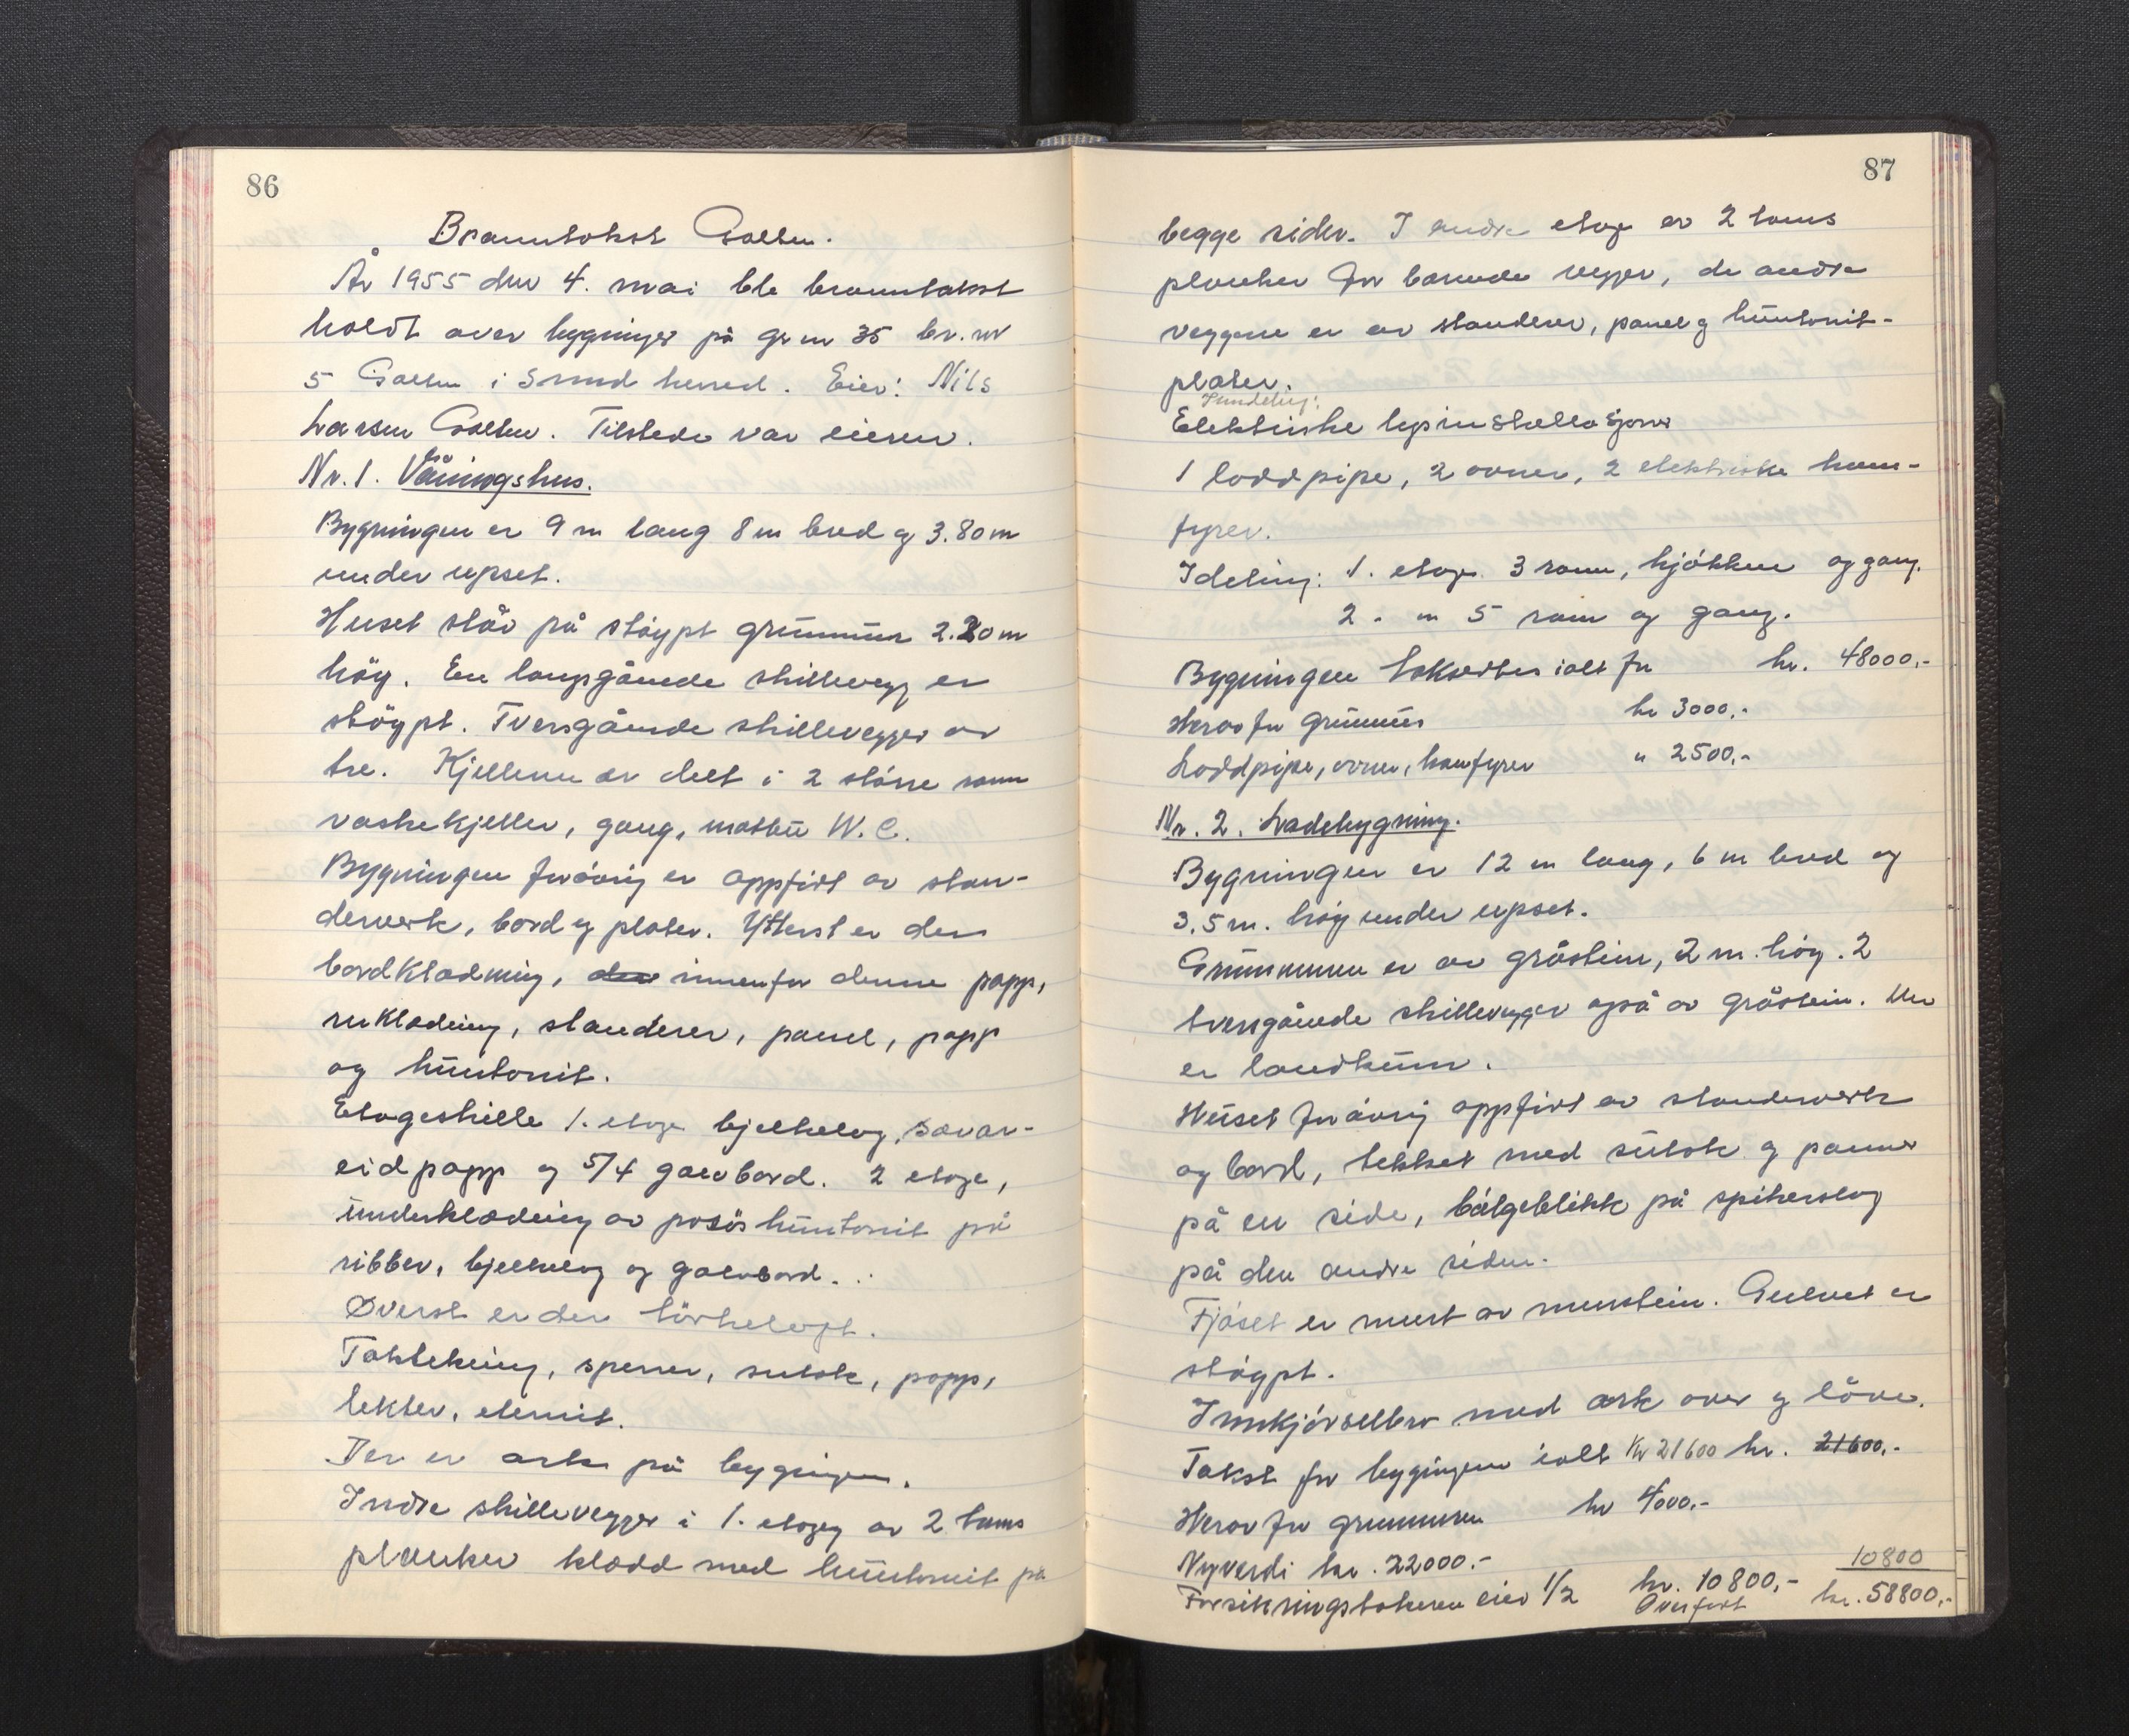 86
Branntakst Golten.
År 1955 den 4. mai ble branntakst
holdt over bygninger på gr nr 35 br. nr
5 Golten i Sund herred. Eier: Nils
Larsen Golten. Tilstede var eieren.
Nr. 1. Våningshus.
Bygningen er 9 m lang 8 m bred og 3.80 m
under upset.
Huset står på støypt grunnmur 2.20 m
høy. En langsgående skillevegg er
støypt. Tversgående skillevegger av
tre. Kjelleren er delt i 2 større rom
vaskekjeller, gang, matbu W.C.
Bygningen forøvrig er oppført av stan-
derverk, bord og plater. Ytterst er der
bordklædning, der innenfor denne papp,
ruklædning, standerer, panel, papp
og huntonit.
Etageskille 1. etage bjelkelag, Sævar-
eidpapp og 5/4 golvbord. 2 etage,
underklædning av porøs huntonit på
ribber, bjelkelag og golvbord.
Øverst er der tørkeloft.
Taktekking, sperrer, sutak, papp,
lekter, eternit.
Der er ark på bygningen.
Indre skillevegger i 1. etage av 2 toms
planker klædd med huntonit på
87
begge sider. I andre etage er 2 toms
planker for bærende vegger, de andre
veggene er av standerer, panel og huntonit-
plater.
Innredning:
Elektriske lysinstallasjoner
1 loddpipe, 2 ovner, 2 elektriske kom-
fyrer.
Ideling: 1. etage 3 rom, kjøkken og gang.
2. " 5 rom og gang.
Bygningen takseres ialt for kr. 48000,-
Herav for grunnmur kr 3000,-
Loddpipe, ovner, komfyrer " 2500,-
Nr. 2. Ladebygning.
Bygningen er 12 m lang, 6 m bred og
3,5 m. høy under upset.
Grunnmuren er av gråstein, 2 m. høy. 2
tversgående skillevegger også av gråstein. Der
er landkum.
Huset forøvrig oppført av standerverk
og bord, tekket med sutak og panner
på en side, bølgeblikk på spikerslag
på den andre siden.
Fjøset er murt av murstein. Gulvet er
støypt.
Innkjørselbro med ark over og løve.
Takst for bygningene ialt Kr 21600 kr. 21600,-
Herav for grunnmuren kr 4000.-
Nyverdi kr. 22000.-
10800
Forsikringstakeren eier 1/2 kr. 10800,-
Overført kr. 58800,-